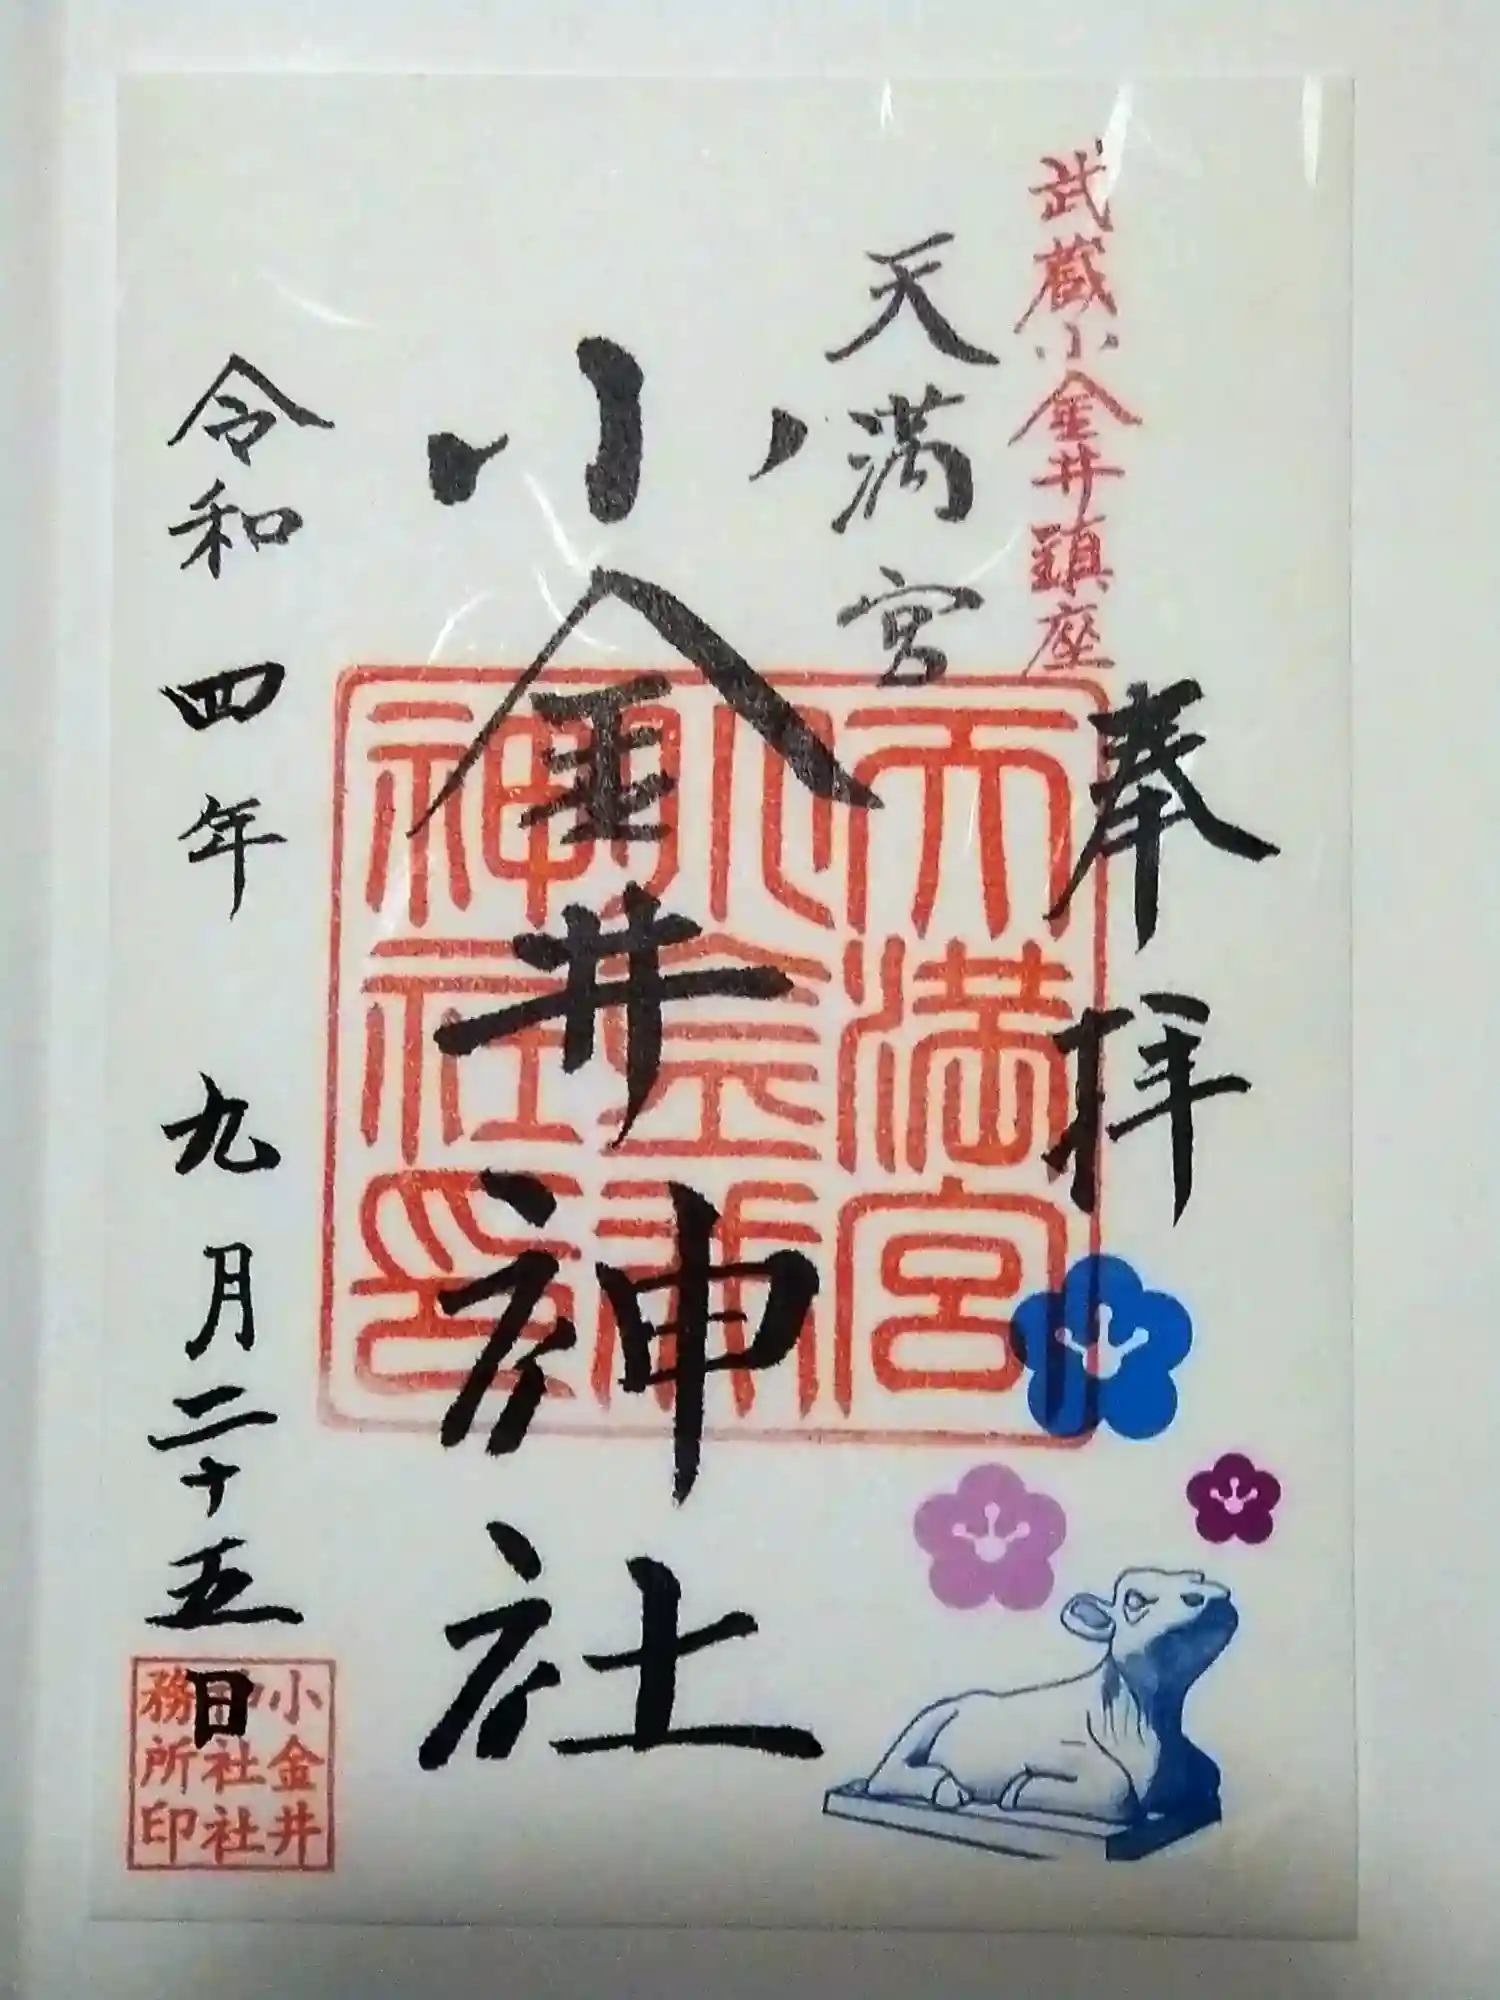 奉拝
武蔵小金井鎮座
天満宮
小金井神社
天満宮
小金井
神社印
令和四年九月二十五日
小金井
神社社
務所印